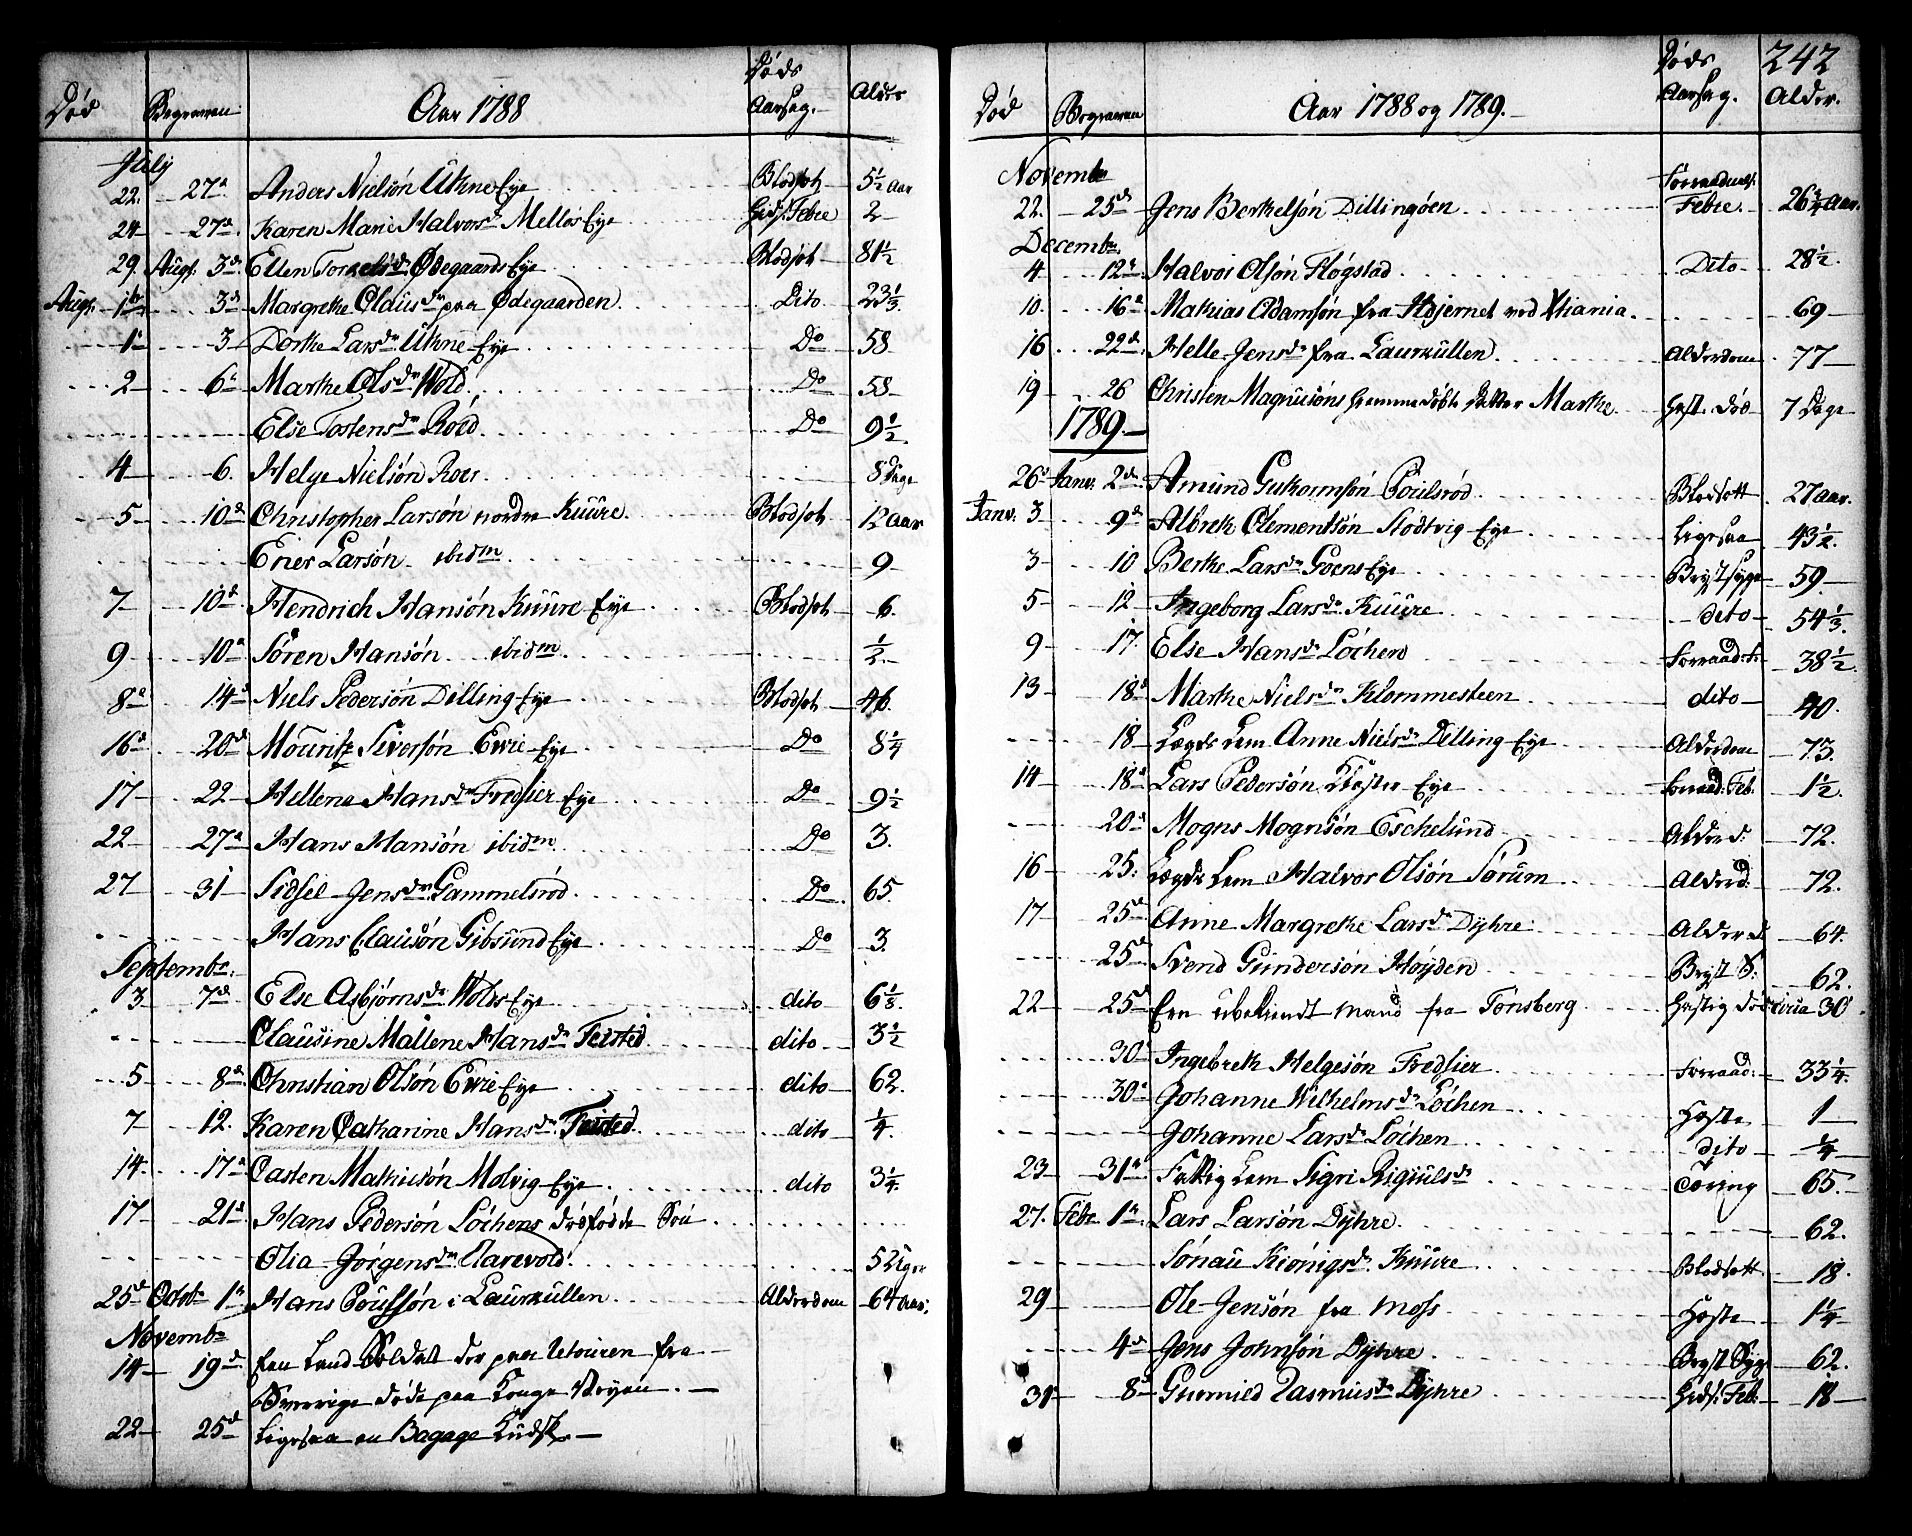 Død Begraven Aar 1788 Døds Aarsag. Alder
July
22. 27de Anders Nielsøn Ükne Eye Blodsot 5½ Aar
24 27de Karen Marie Halvorsdr Mellös Eye Hids: Febre 2
29. Augt. 3de Ellen Torkelsdr Ødegaards Eye Blodsot 81½
Augt. 1ste 3de Margrethe Olausdr paa Ødegaarden Dito 23⅓
1 3 Dorthe Larsdr Ükne Eye Do 58
2 6te Marthe Olsdr Wold Do 58
Else Tostensdr Roed Do 9½
4 6 Helge Nielsøn Roer 8 Dage
5 10de Christopher Larsøn nordre Kuüre Blodsot 12 Aar
Erier Larsøn ibidm 9
7 10de Hendrich Hansøn Kuüre Eye Blodsot 6
9 10de Søren Hansøn ibidm ½
8de 14de Niels Pedersøn Dilling Eye Blodsot 46
16de 20de Mouritz Siversøn Evie Eye Do 8¼
17 22 Hellene Hansdr Fredsier Eye Do 9½
22 27de Hans Hansøn ibidm Do 3
27 31 Sidsel Jensdr Gammelsrød Do 65
Hans Clausøn Gibsund Eye Do 3
Septembr:
3 7de Else Asbjørnsdr Wolds Eye dito 6⅛
Clausine Mallene Hansdr Teisted dito 3½
5 8de Christian Olsøn Evie Eye dito 62
7 12. Karen Catharine Hansdr Teisted dito ¼
14 17de Casten Mathisøn Molvig Eye dito 3¼
17 21de Hans Pedersøn Løchens dødfødde Søn
Olia Jørgensdr Clarevold 5 Uger
25de Octobr 1te Hans Poulsøn i Laurkullen Alderdom 64 Aar
Novembr
14 19de Een Land Soldat der paa Retouren fra
Sverrige døde paa Konge Veyen.
22 25de Ligesaa en Bagage Kudsk
242
Død Begraven Aar 1788 og 1789. Døds Aarsag. Alder.
Novembr
22. 25de Jens Berthelsøn Dillingøen Forraadnels. Febre 26¾ Aar.
Decembr
4 12te Halvor Olsøn Fløgstad Dito 28½
10. 16de Mathias Adamsøn fra Hjernet ved Xtiania 69
16 22de Helle Jensdr fra Laurkullen Alderdom 77
19 26 Christen Magnusøns hiemmedøbte Datter Marthe Hast. Død 7 Dage
1789.
26de Janv. 2de Amund Guttormsøn Poulsrød Blodsott 27 Aar.
Janv. 3 9de Albreth Clementsøn Stodtvig Eye Ligesaa 43½
3 10 Berthe Larsdr Goens Eye Brystsyge 59
5 12 Ingeborg Larsdr Kuüre dito 54⅓
9 17 Else Hansdr Løchen Forraad:F: 38½
13 18de Marthe Nielsdr Klommesteen dito 40
18 Lægds Lem Anne Nielsdr Dilling Eye Alderdom 73
14 18de Lars Pedersøn Kloster Eye Forraad: Feb. 1½
20de Mogns Mognsøn Eschelund Alderd: 72
16 25. Lægds Lem Halvor Olsøn Sørum Alderd: 72.
17 25de Anne Margrethe Larsdr Dyhre Alderd: 64
25de Svend Gundersøn Høyden Bryst S: 62
22 25de Een ubekiendt Mand fra Tønsberg Hastig død circa 30
30 Ingebreth Helgesøn Fredsier Forraad: 33¼
30te Johanne Wilhelmsdr Løchen Hoste 1
Johanne Larsdr Løchen dito ¼
23 31te Fattig Lem Sigri Rigiulsdr Tæring 65
27. Febr. 1te Lars Larsøn Dyhre 62
Kuüre Blodsott 18
29 Ole Jensøn fra Moss Hoste 1¼
4de Jens Johnsøn Dyhre Bryst Syg: 62
31 8de Gunnild Rasmusdr Dyhre Hids: Feb: 18